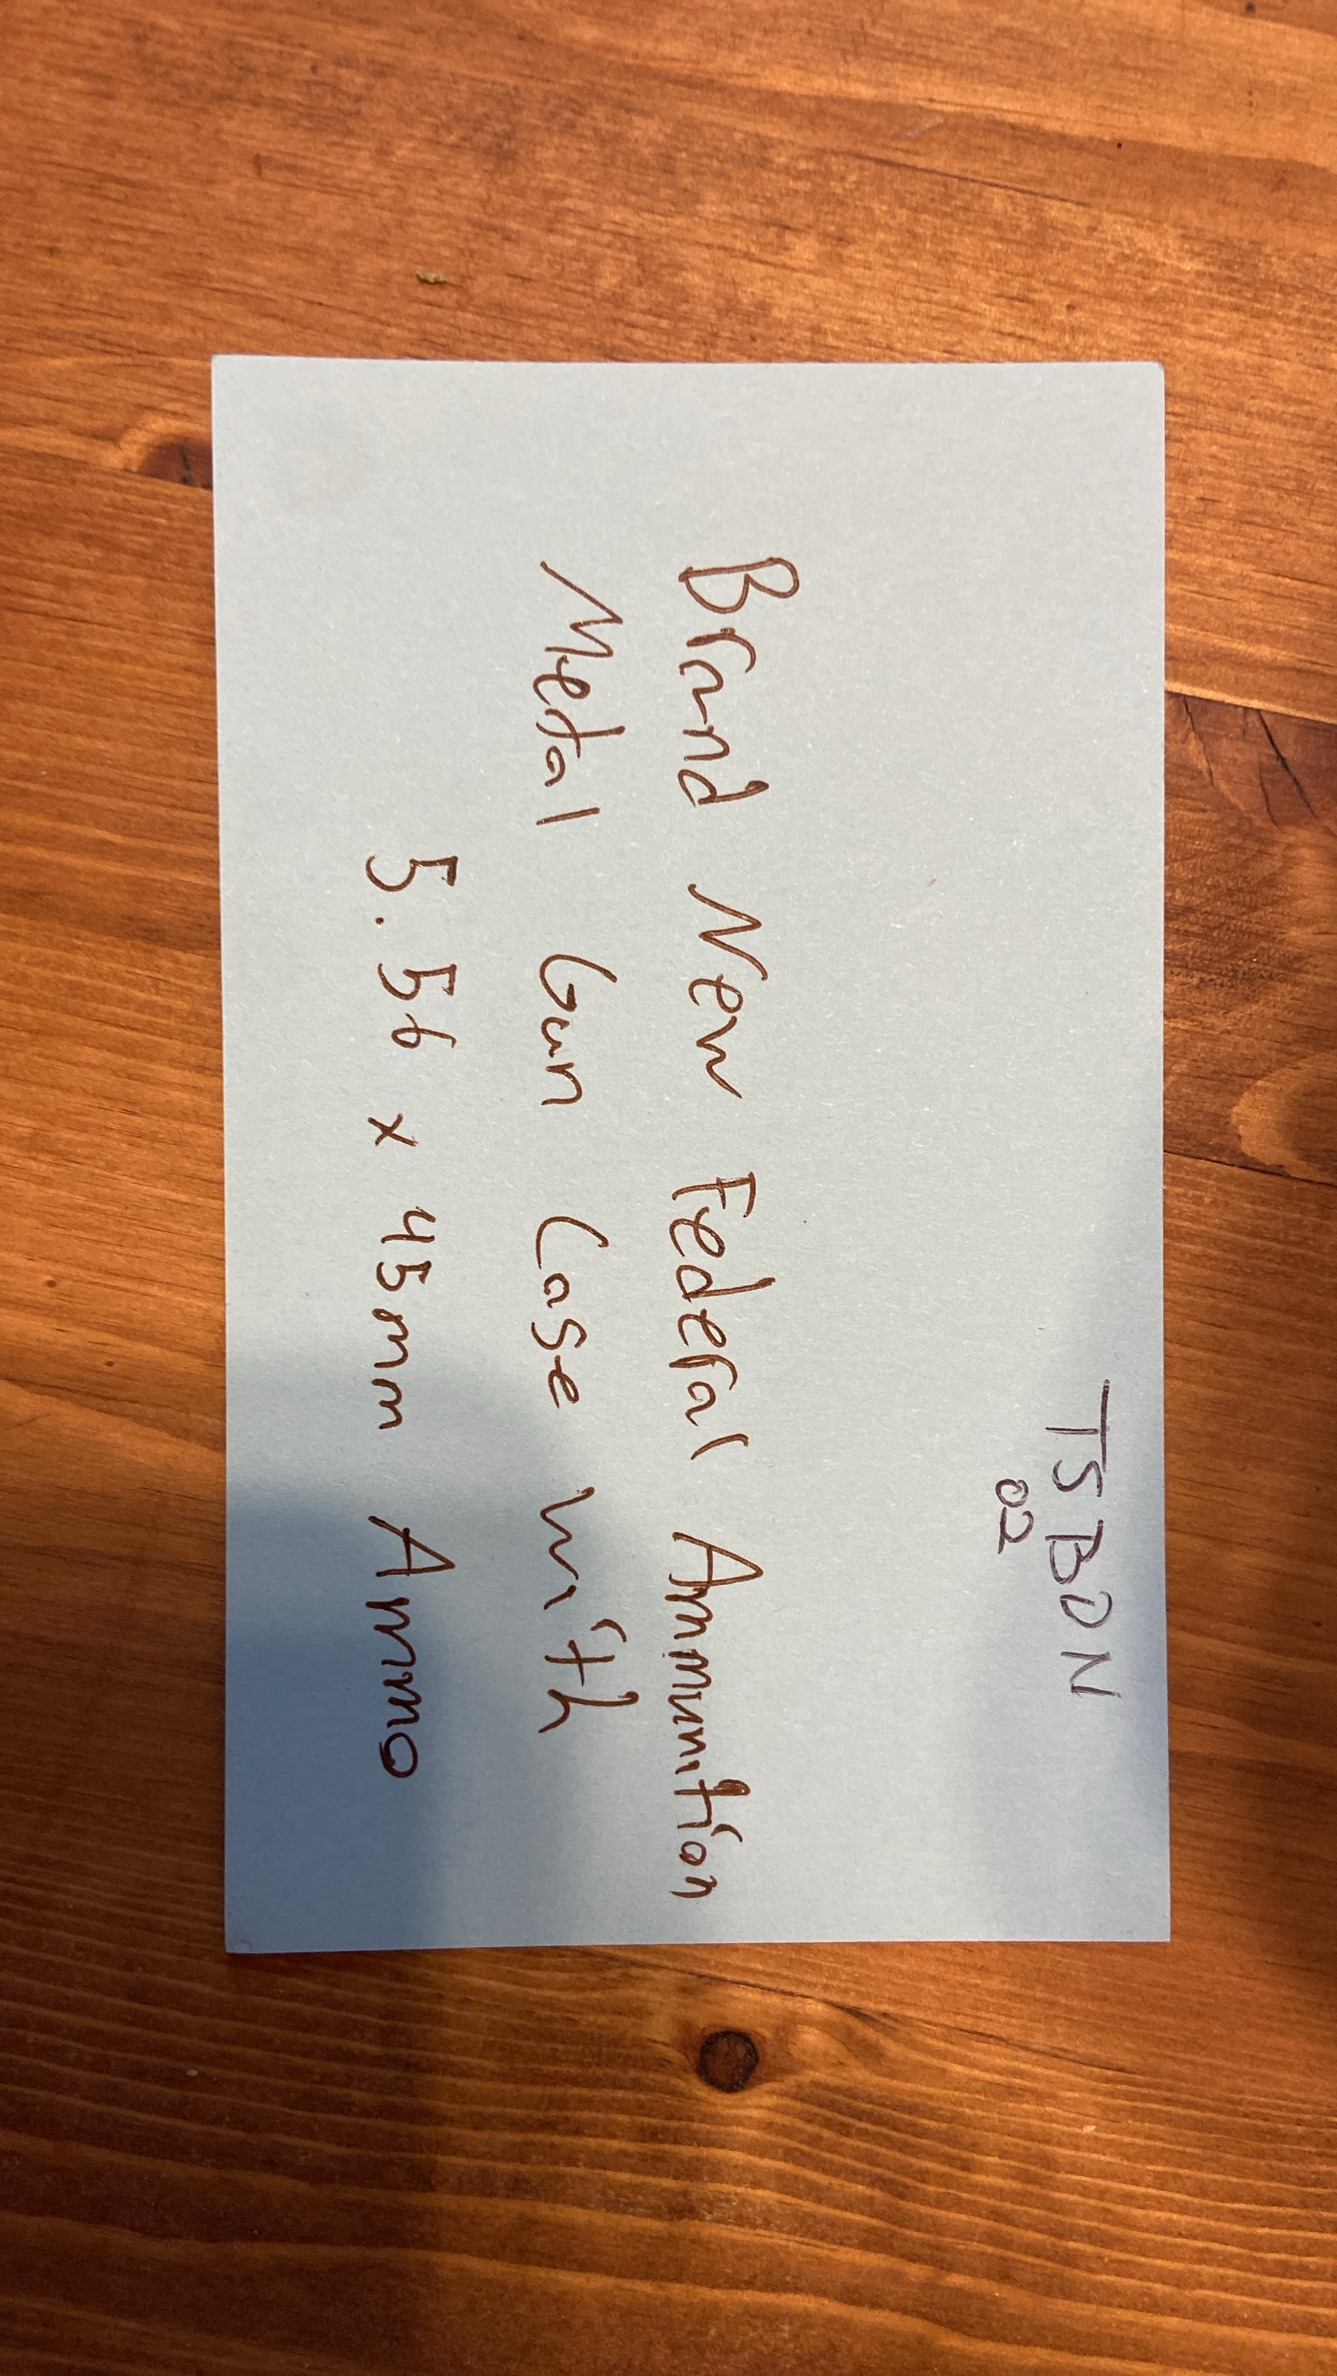 TSBDN
02
Brand New Federal Ammunition
Metal Gun Case with
5.56 x 45mm Ammo